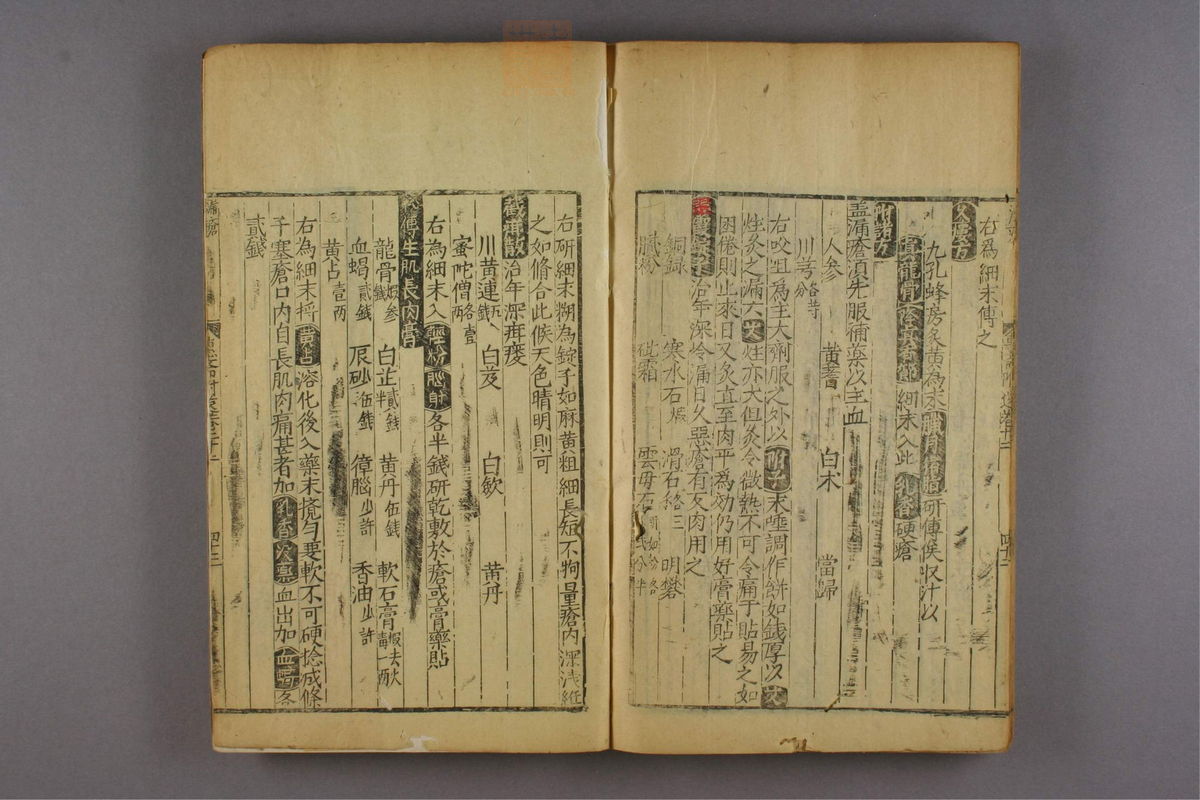 右爲細末傅之
又漏方
九孔蜂房炙黄為末臘月猪脂研傅候收汁以
龍骨 細末入此乳香硬瘡
附諸方
盖漏瘡須先服補藥以主血
人參 黄耆 白朮 當歸
川芎各等分
右㕮咀爲主大劑服之外以附子末唾調作餅如錢厚以艾
炷灸之漏大艾炷亦大但灸令微熱不可令痛干貼易之如
困倦則止來日又灸直至肉平爲効仍用好膏藥貼之
治年深冷漏日久惡瘡有歹肉用之
銅録 寒水石煅 滑石各三 明礬
膩粉 砒霜 雲母石
右研細末糊為錠子如麻黄粗細長短不拘量瘡内深浅紝
之如脩合此候天色晴明則可
截疳散治年深疳瘻
川黄連五 白芨 白歛 黄丹
蜜陀僧各壹兩
右為細末入輕粉腦射各半錢研乾敷於瘡或膏藥貼
傅生肌長肉膏
龍骨煅参錢 白芷貳錢半 黄丹伍錢 軟石膏煅去火毒一兩
血蝎貳錢 辰砂伍錢 獐腦少許 香油少許
黄占壹兩
右為細末捋黄占溶化後入藥末攪匀要軟不可硬捻成條
子塞瘡口内自長肌肉痛甚者加乳香没藥血出加血蝎各
貳錢